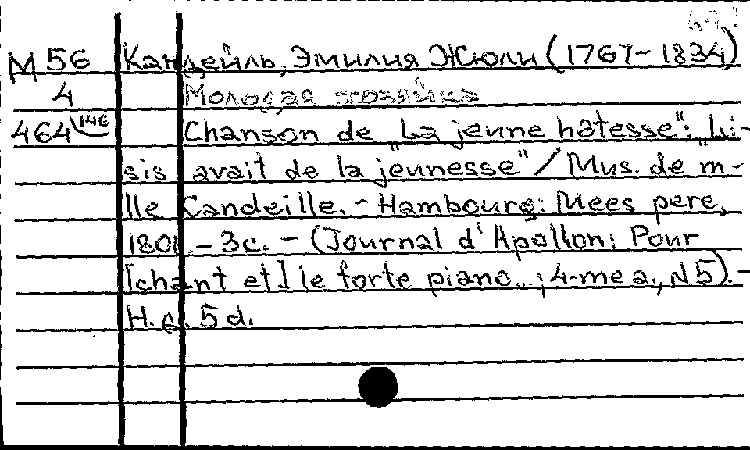 М 56 Кандейль, Эмилия Жюли (1767-1834)
4 Молодая хозяйка
464 146 Chanson de „La jeune hotesse": „Li-
sis avait de la jeunesse" / Mus. de m-
lle Candeille. - Hambourg: Mees pere,
1801. - 3c. - (Journal d'Apollon: Pour
[chant et] le forte piano..; 4-me a., N 5). -
H. e. 5 d.